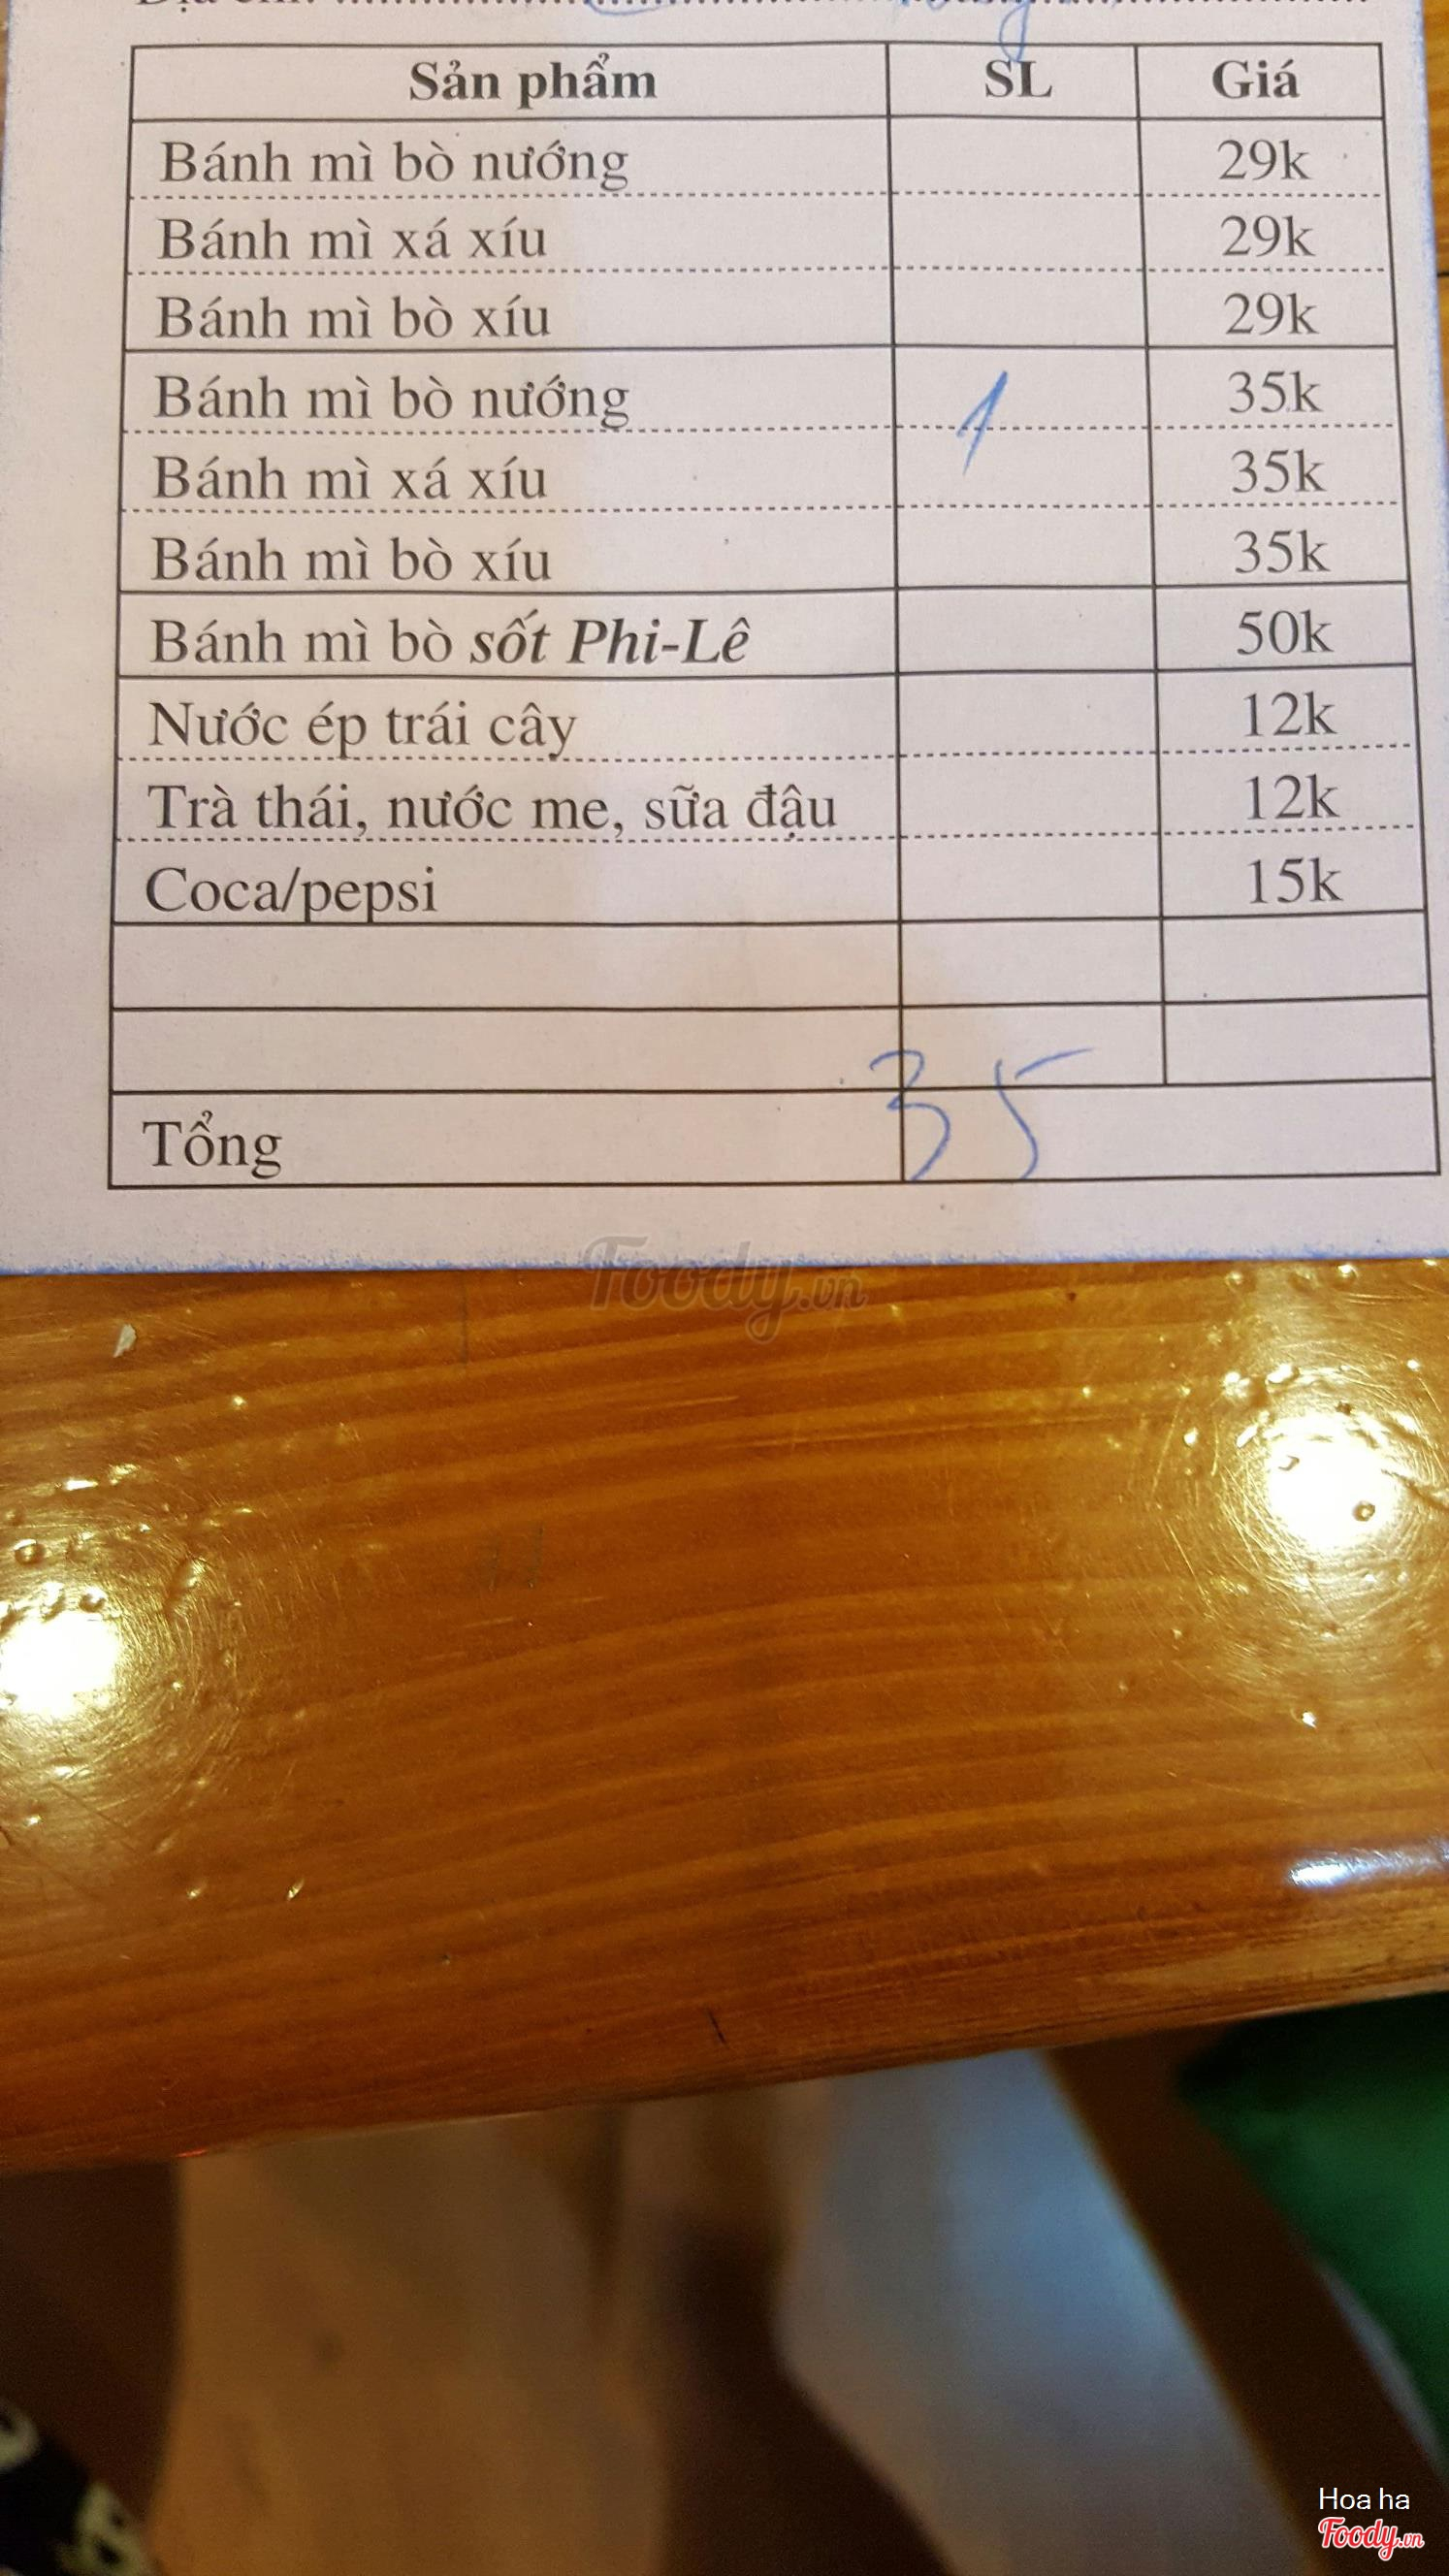 Sản phẩm SL Giá
Bánh mì bò nướng 29k
Bánh mì xá xíu 29k
Bánh mì bò xíu 29k
Bánh mì bò nướng 1 35k
Bánh mì xá xíu 35k
Bánh mì bò xíu 35k
Bánh mì bò sốt Phi-Lê 50k
Nước ép trái cây 12k
Trà thái, nước me, sữa đậu 12k
Coca/pepsi 15k
Tổng 35
Foody.vn
Hoa ha
Foody.vn